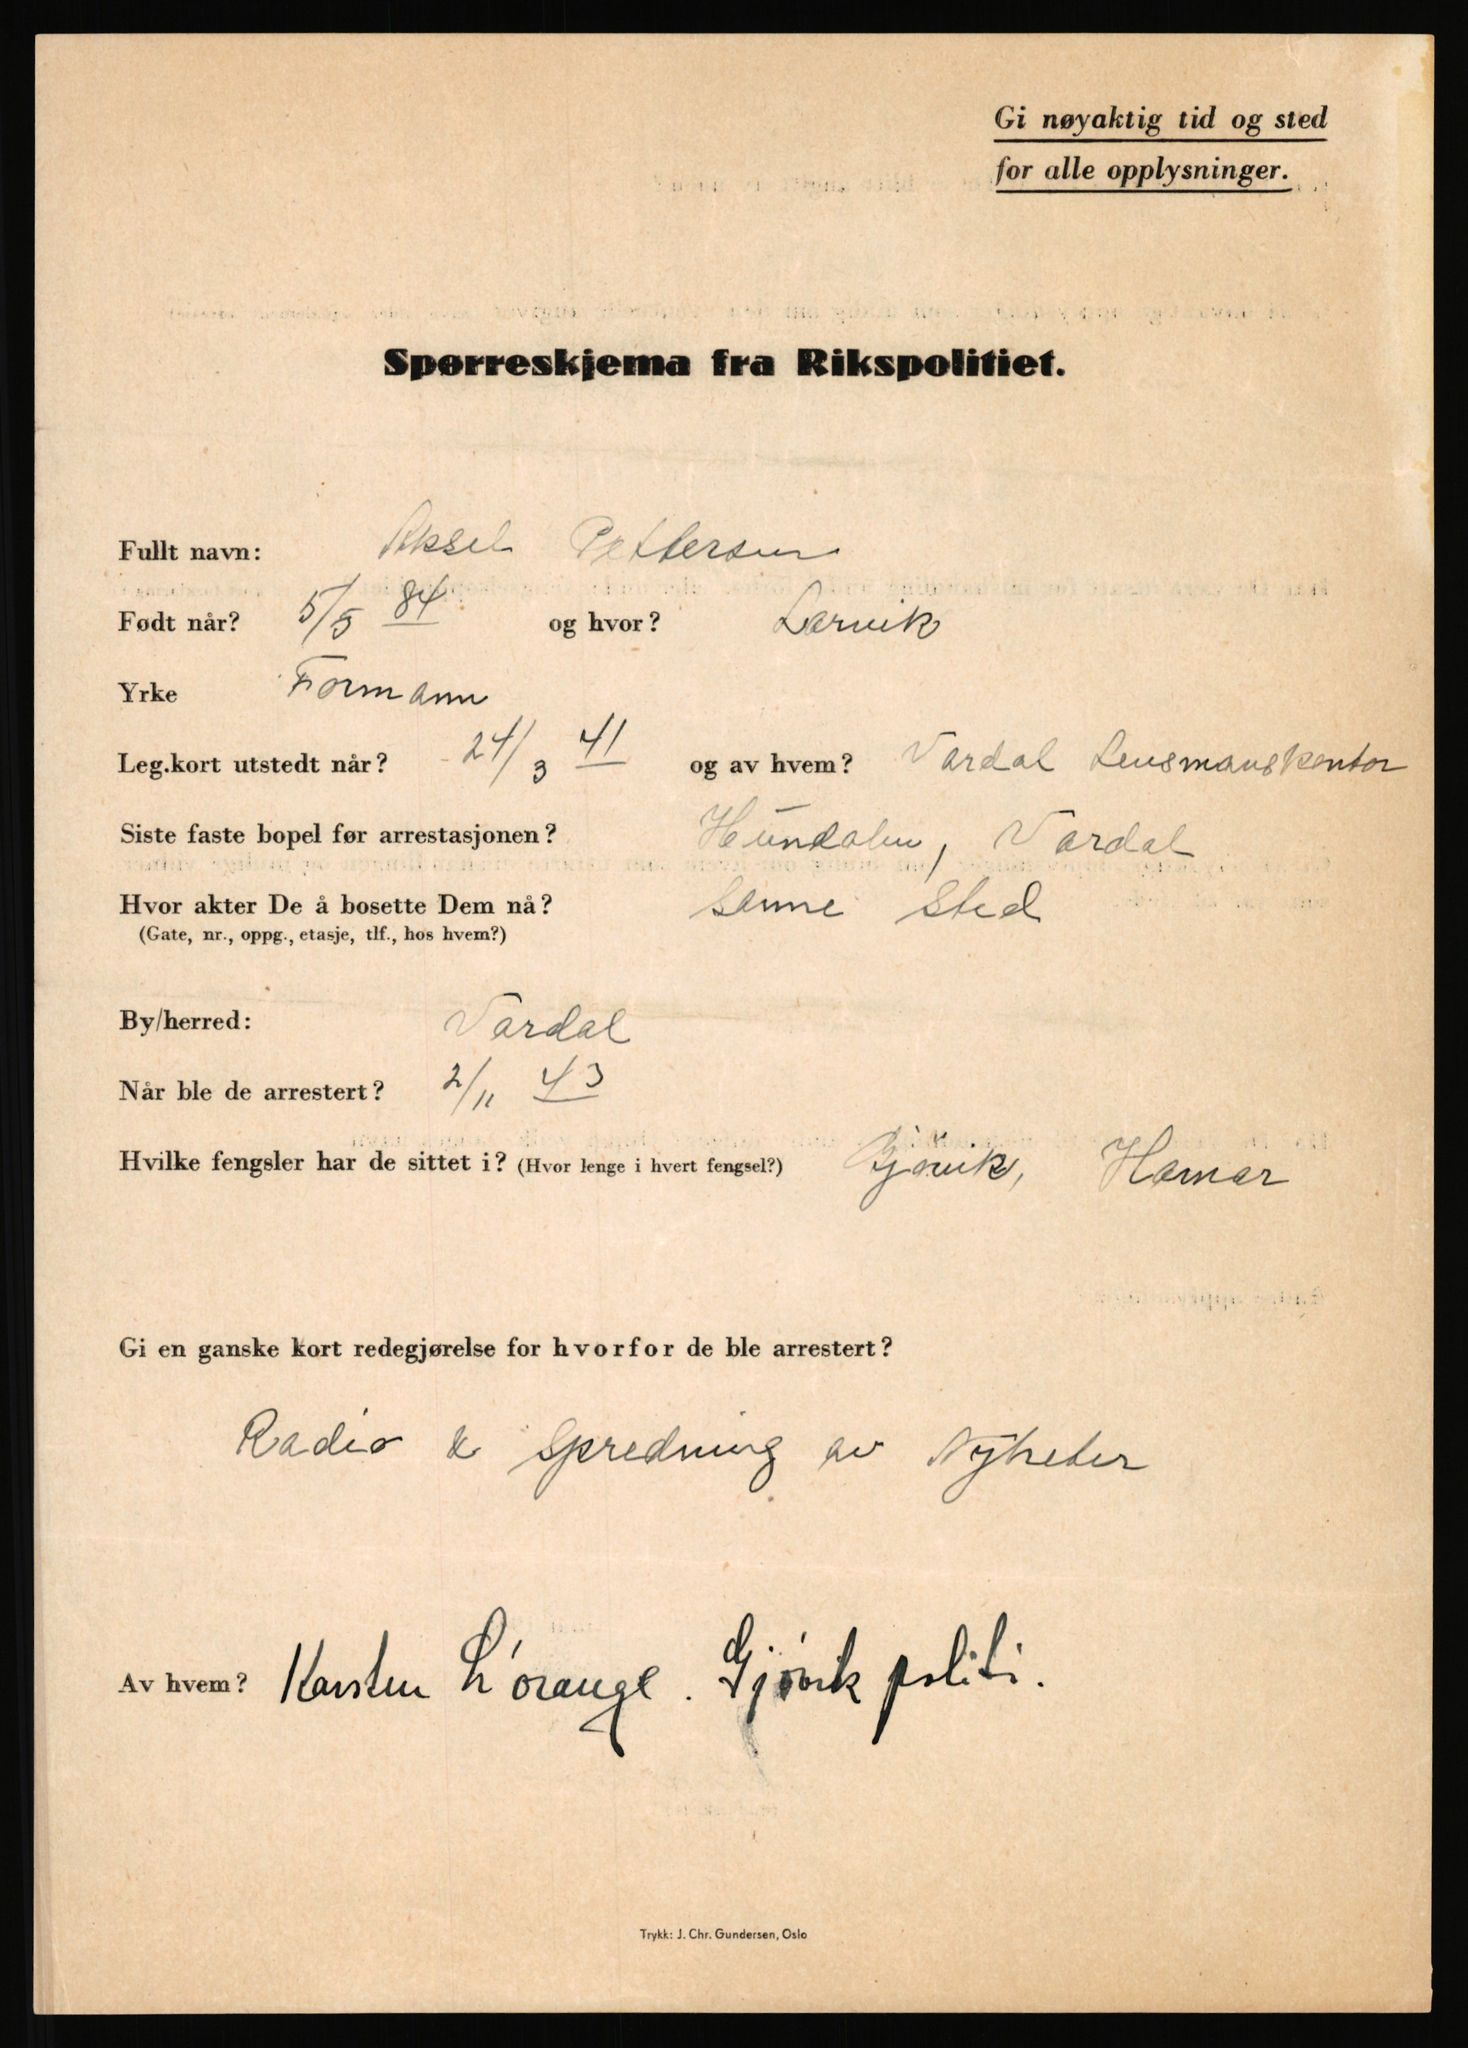 Gi nøyaktig tid og sted
for alle opplysninger.
Spørreskjema fra Rikspolitiet.
Fullt navn: Aksel Pettersen
Født når? 5/5 84 og hvor? Larvik
Yrke Formann
Leg.kort utstedt når? 24/3 41 og av hvem? Vardal Lensmanskontor
Siste faste bopel før arrestasjonen? Hundalen, Vardal
Hvor akter De å bosette Dem nå? samme sted
(Gate, nr., oppg., etasje, tlf., hos hvem?)
By/herred: Vardal
Når ble de arrestert? 2/11 43
Hvilke fengsler har de sittet i? (Hvor lenge i hvert fengsel?) Gjøvik, Hamar
Gi en ganske kort redegjørelse for hvorfor de ble arrestert?
Radio & Spredning av Nyheter
Av hvem? Karsten L'orange. Gjøvik politi.
Trykk: J. Chr. Gundersen, Oslo